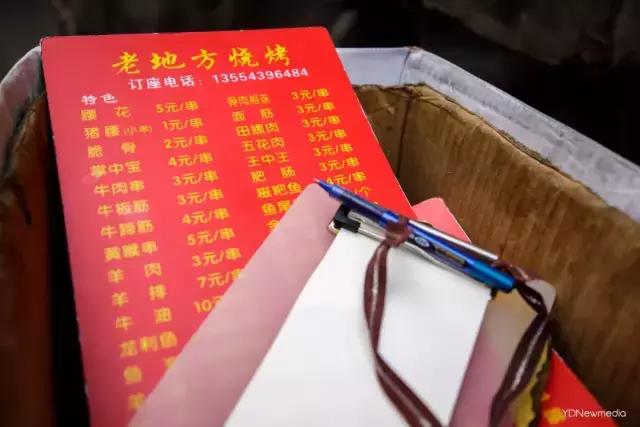 老地方烧烤
订座电话：13554396484
特色
腰 花 5元/串 骨肉相连 3元/串
猪腰(小串) 1元/串 面 筋 3元/串
脆 骨 2元/串 田螺肉 3元/串
掌中宝 4元/串 五花肉 3元/串
牛肉串 3元/串 王中王 3元/串
牛板筋 3元/串 肥 肠 3元/串
牛蹄筋 4元/串 糍粑鱼 4元/串
黄喉串 5元/串 鱼尾 /个
羊 肉 3元/串
羊 排 7元/串
牛 油 10元
龙利鱼
鱼
YDNewmedia